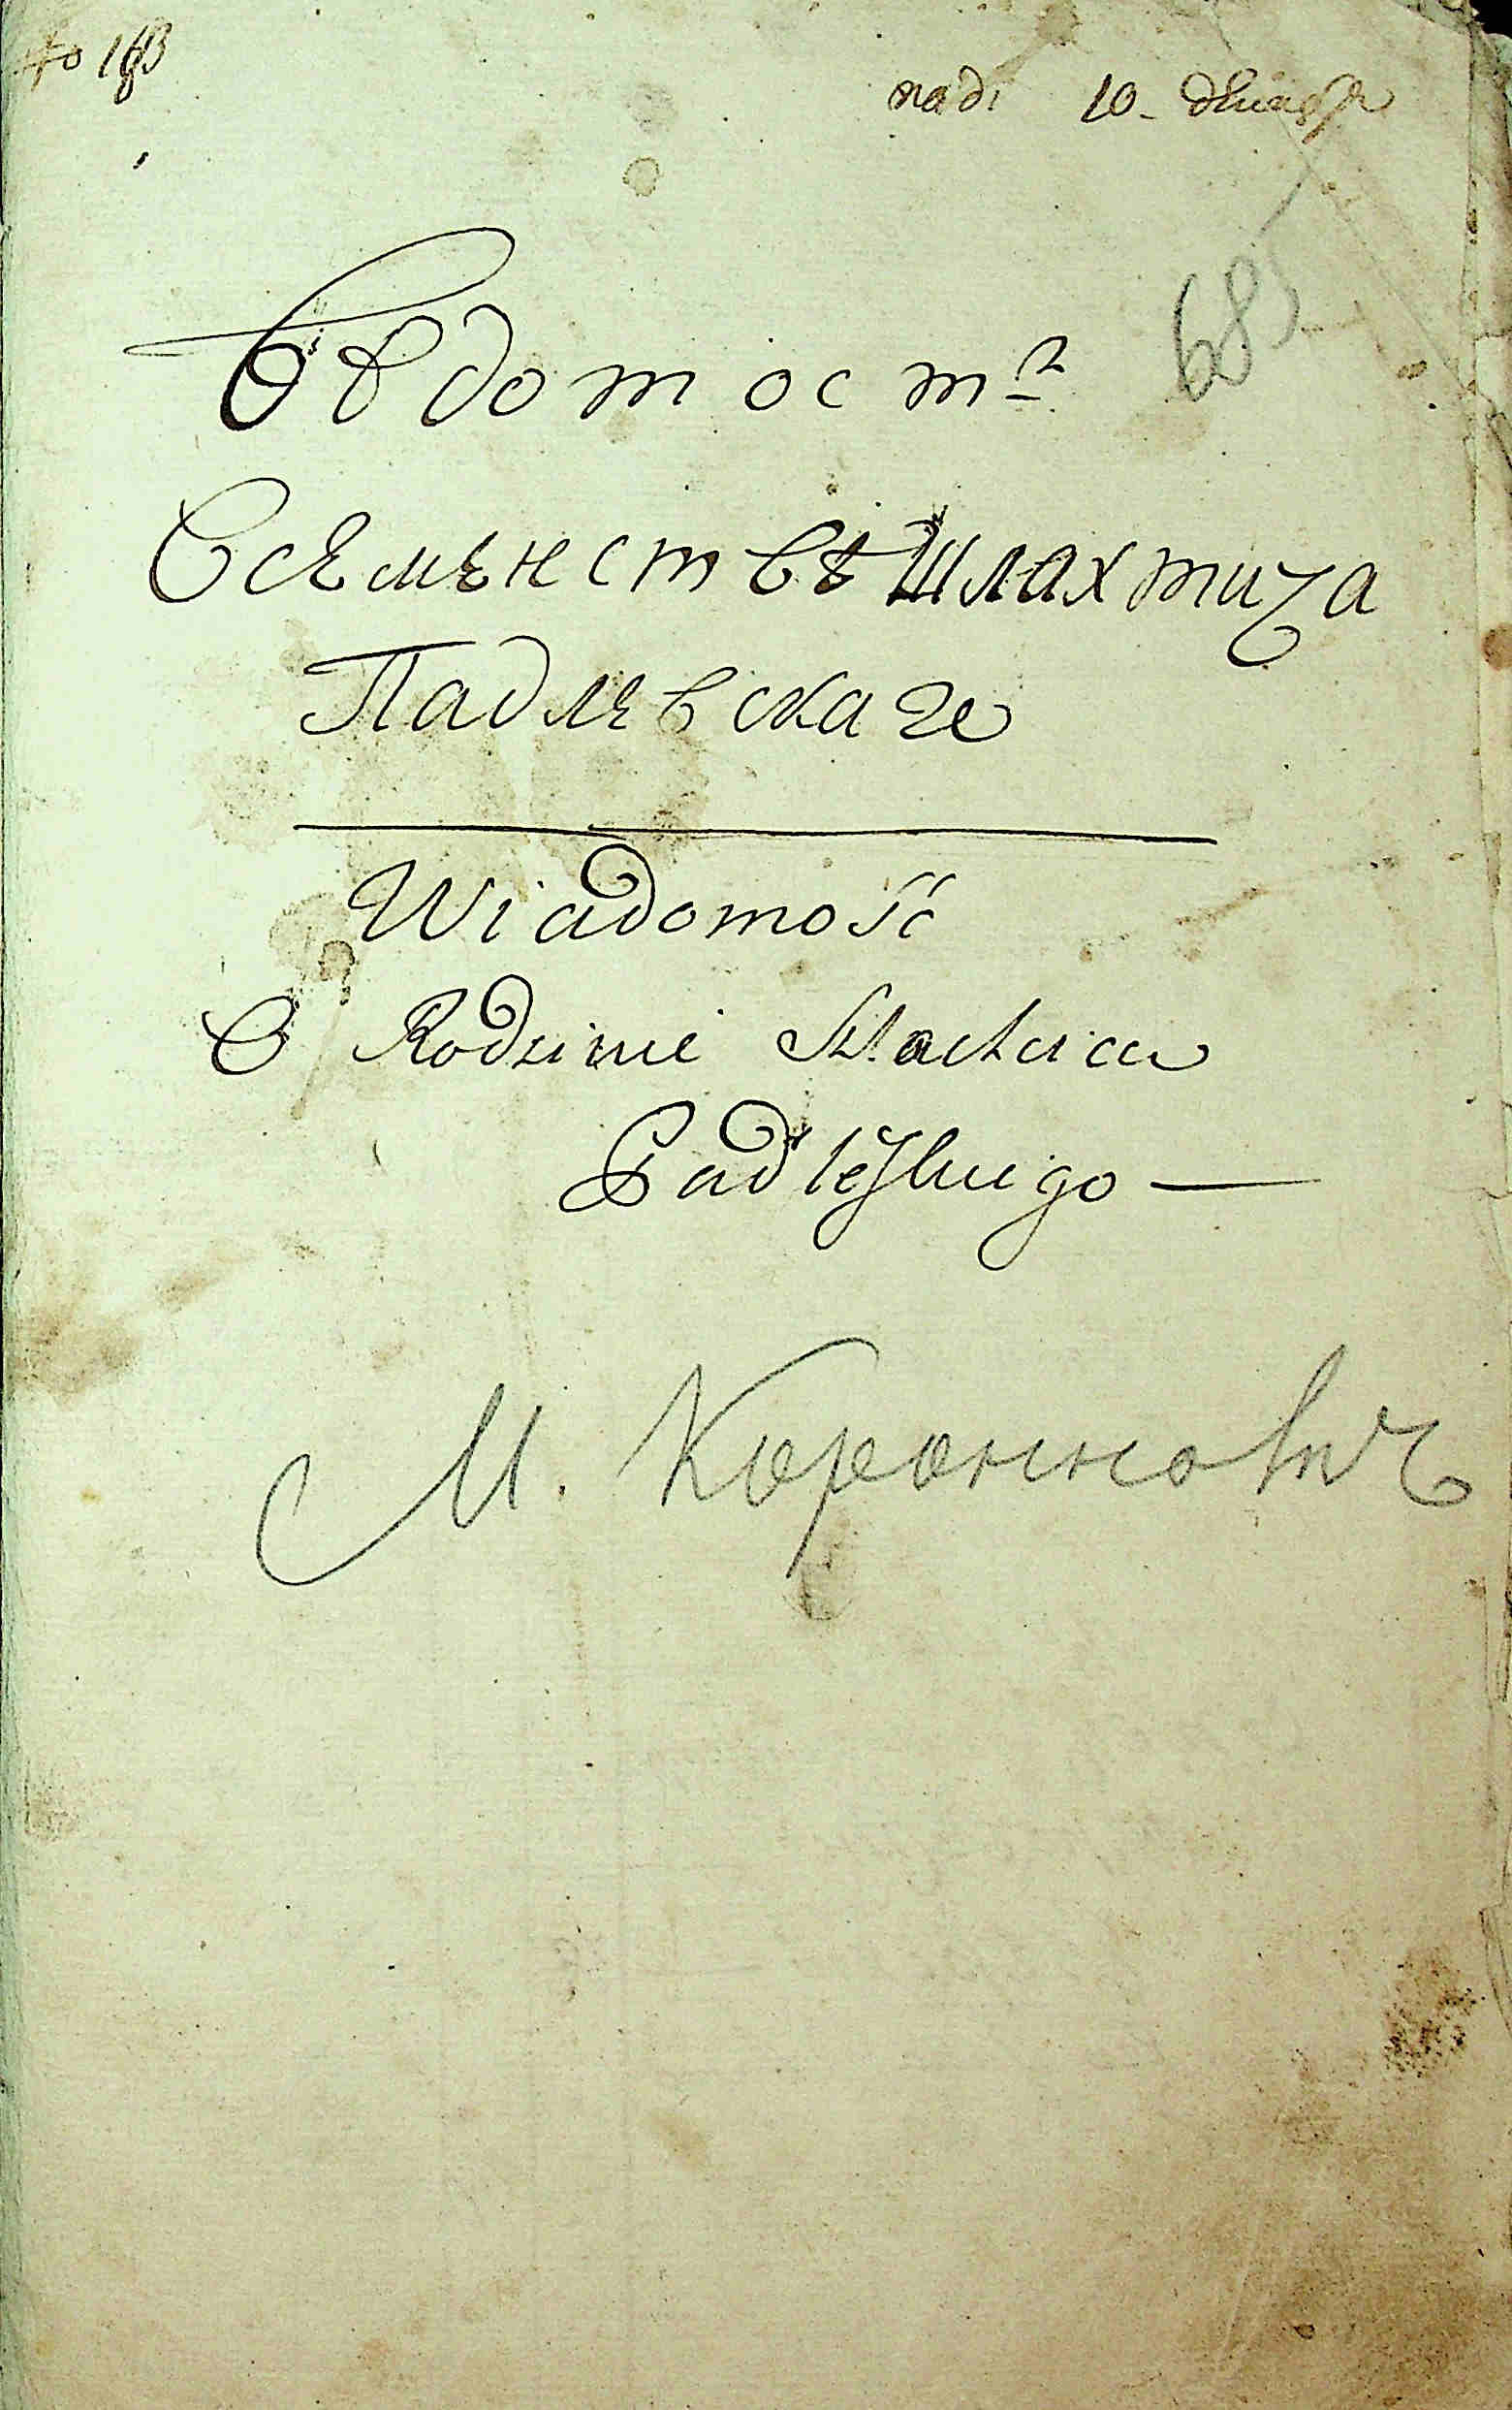 над. 10.
68
Вѣдомость
О семенствѣ Шляхтица
Падлевскаго
Wiadomość
O Rodzinie Szlachcica
Padlewskiego —
М. Коронкович